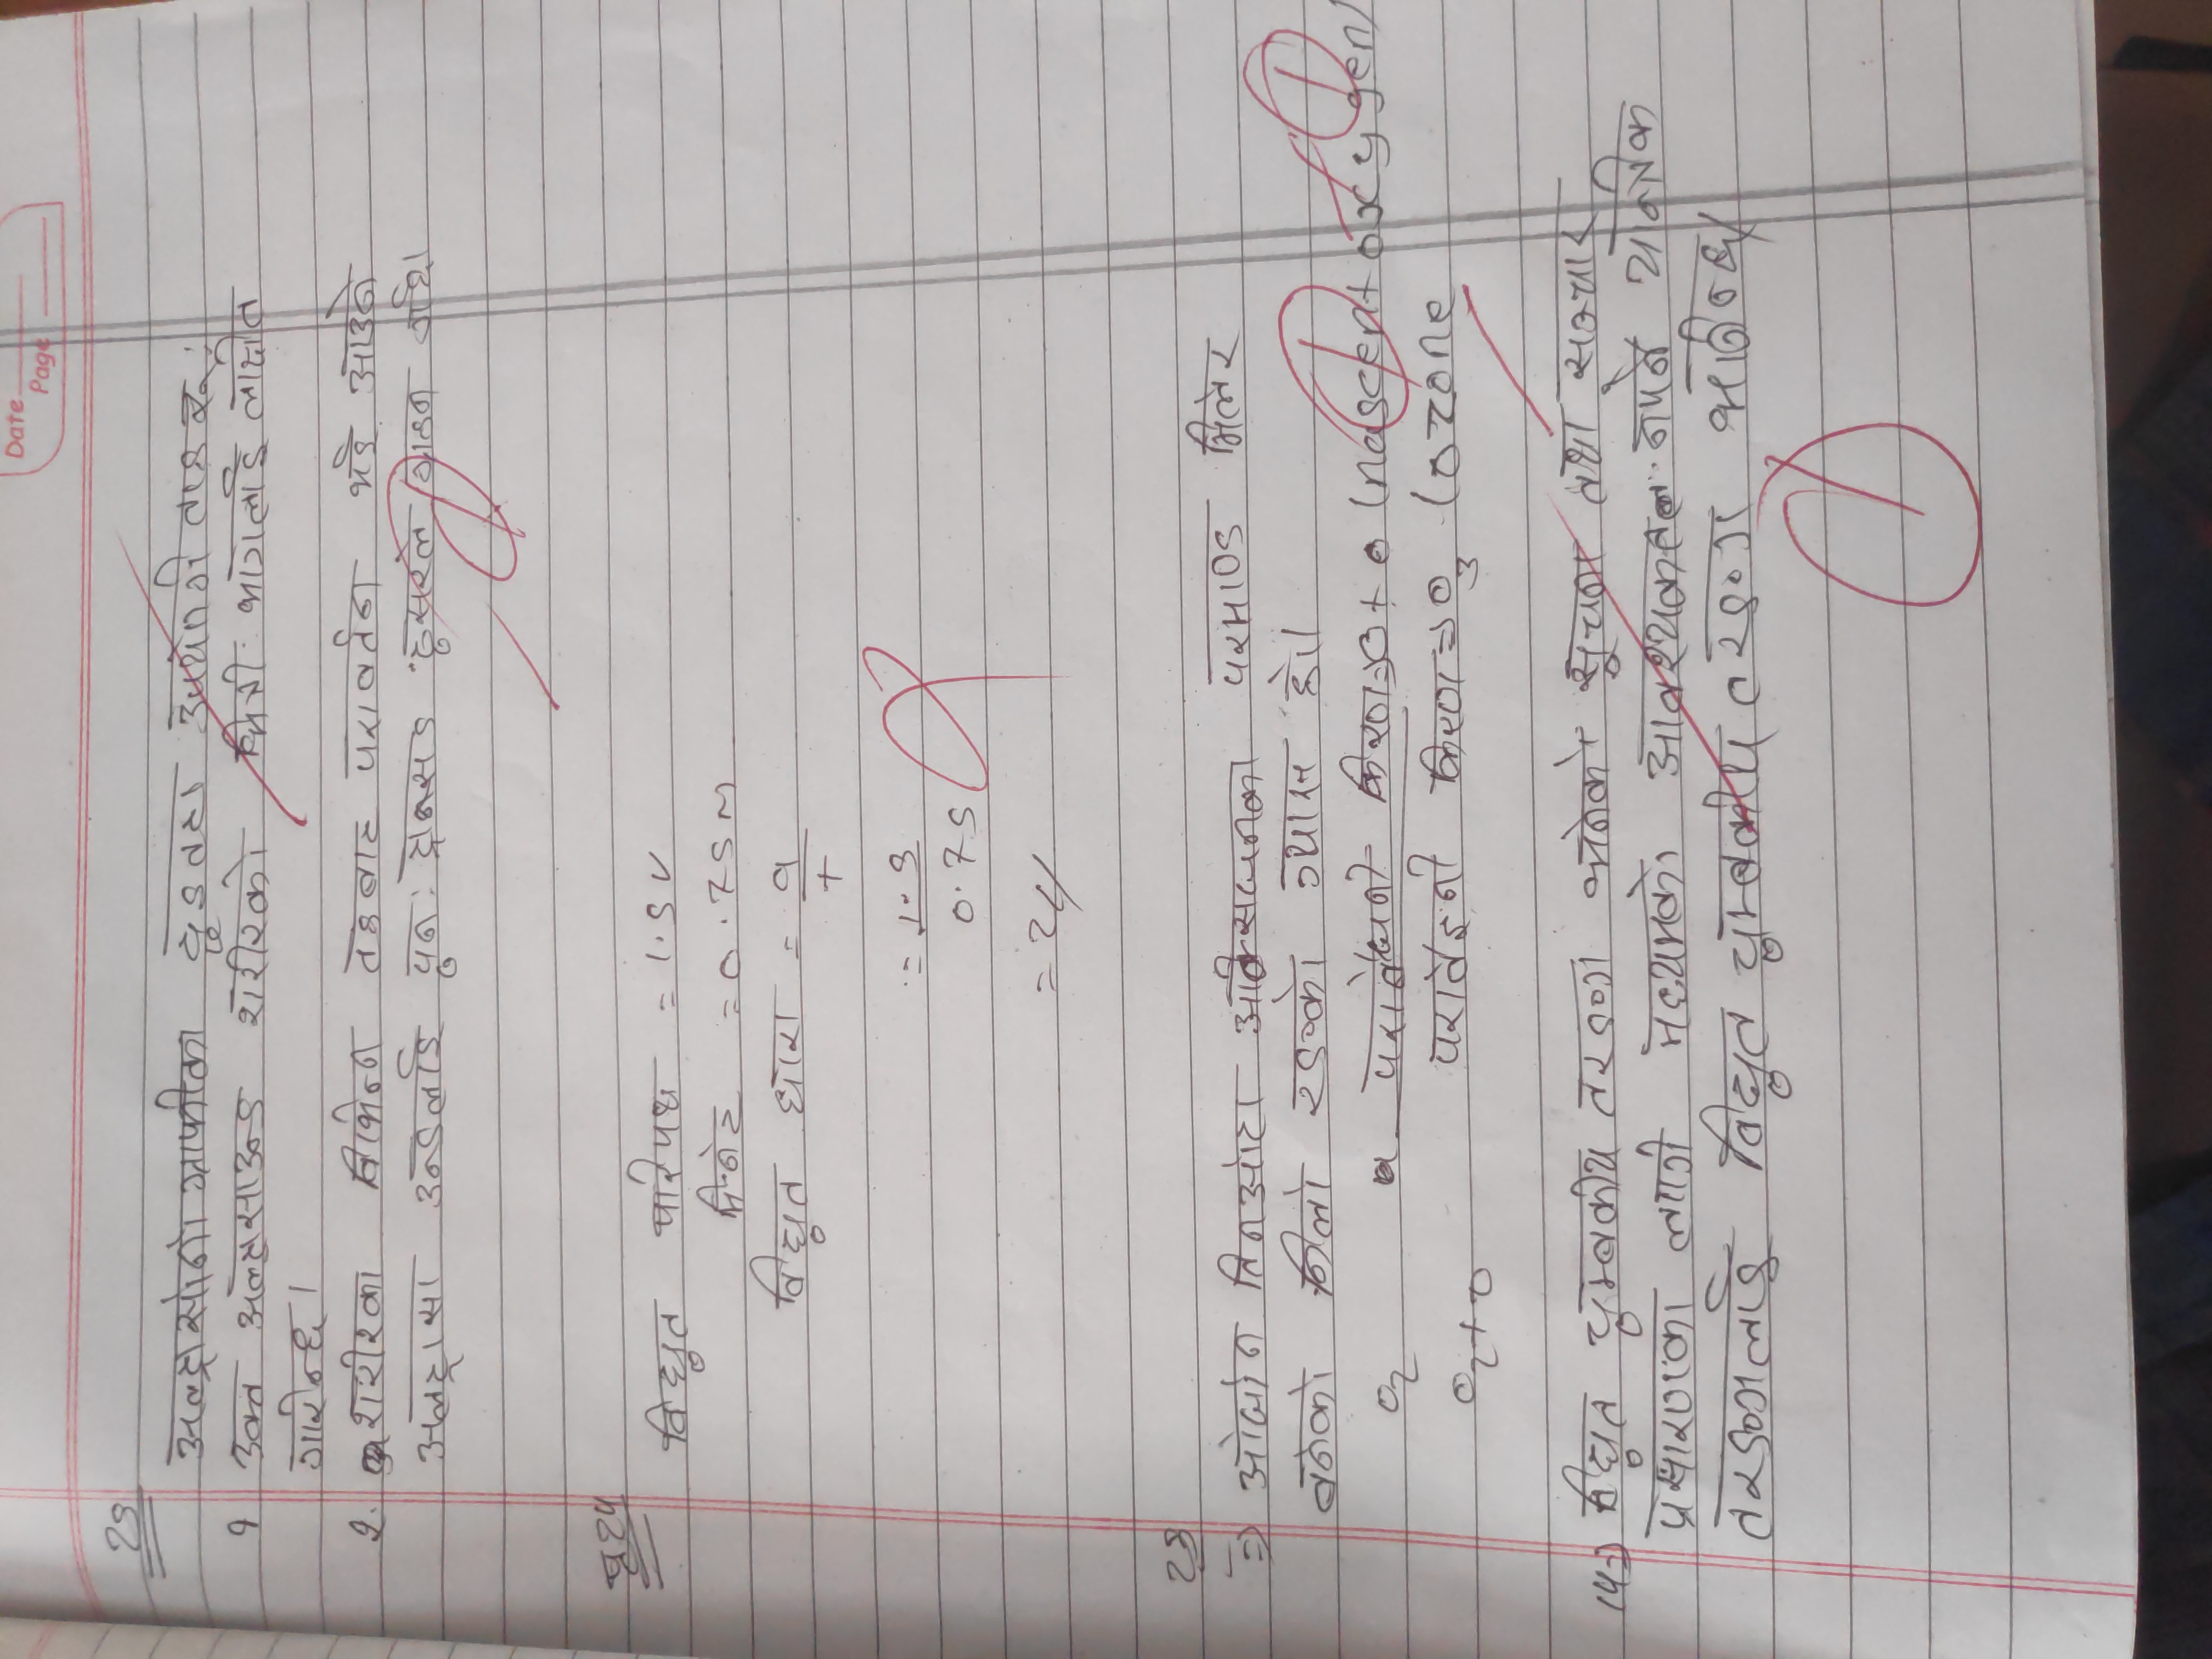 Date
Page
25
अल्ट्रासोनोग्राफीका दुइवटा उपयोगीताहरू:
१ उक्त अल्ट्रासाउन्ड शरीरको भित्री भागलाई लाक्षीत
गारीन्छ।
२. शरीरका विभिन्न तहबाट परावर्तन भई आउने
अलट्रासा उन्डलाई पुन: ट्रान्सड्युसरले
24
विद्युत परिपथ = 1.5V
मिनेट = 0.75 M
विद्युत धारा = q
t
= 1.5
0.75
= 2//
23
=) ओजोन तिनओटा अक्सिजनका परमाणु मिलेर
बनेको निलो रङको ग्यास हो।
O2 परावैजनी किरण=> O + O (nascent oxygen)
O2+O परावैइनी किरण=> O3 (ozone
14=) विद्युत चुम्बकीय तरङग भनेको सूचना तथा सञ्चार
प्रसारणका लागी मध्यमको आवश्यकता नपर्ने यान्त्रिक
तरङगलाई विद्युत चुम्बकीय तरङग भनिन्छ।